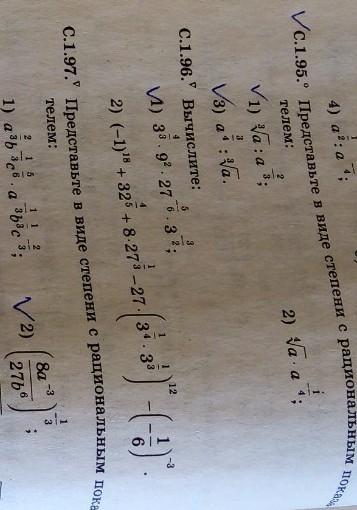 4) a^(1/2) : a^(-1/4);
С.1.95.° Представьте в виде степени с рациональным показа
телем:
1) ∛a : a^(-2/3); 2) ∜a · a^(-1/4);
3) a^(3/4) : ∛a.
С.1.96.∇ Вычислите:
1) 3^(4/3) · 9^2 · 27^(-5/6) · 3^(-3/2);
2) (-1)^18 + 32^(4/5) + 8·27^(1/3) - 27 · (3^(1/4) · 3^(1/3))^12 - (-1/6)^(-3).
С.1.97.∇ Представьте в виде степени с рациональным пока
телем:
1) a^(2/3)b^(1/3)c^(5/6) · a^(-1/3)b^(1/3)c^(-2/3); 2) (8a^(-3)/27b^6)^(-1/3);